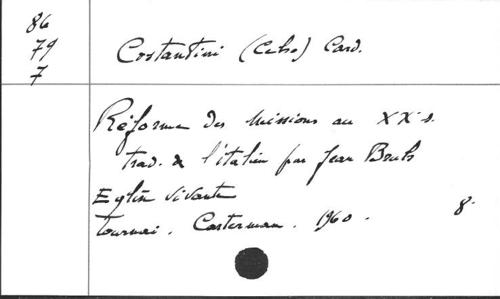 86
79
7
Costantini (Celso) Card.
Réforme des Missions au XXe s.
trad. de l'italien par Jean Bruls
Eglise vivante
Tournai. Casterman. 1960.
8°